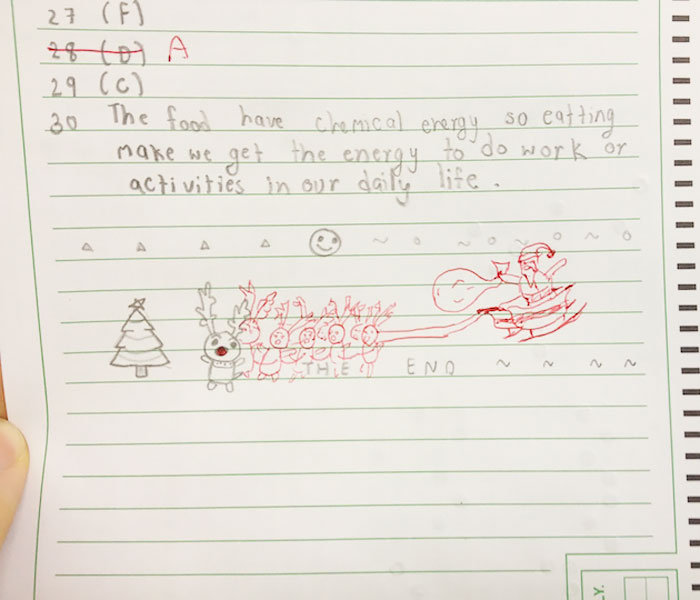 27 (F)
28 (D) A
29 (C)
30 The food have chemical energy so eatting
make we get the energy to do work or
activities in our daily life.
THE END